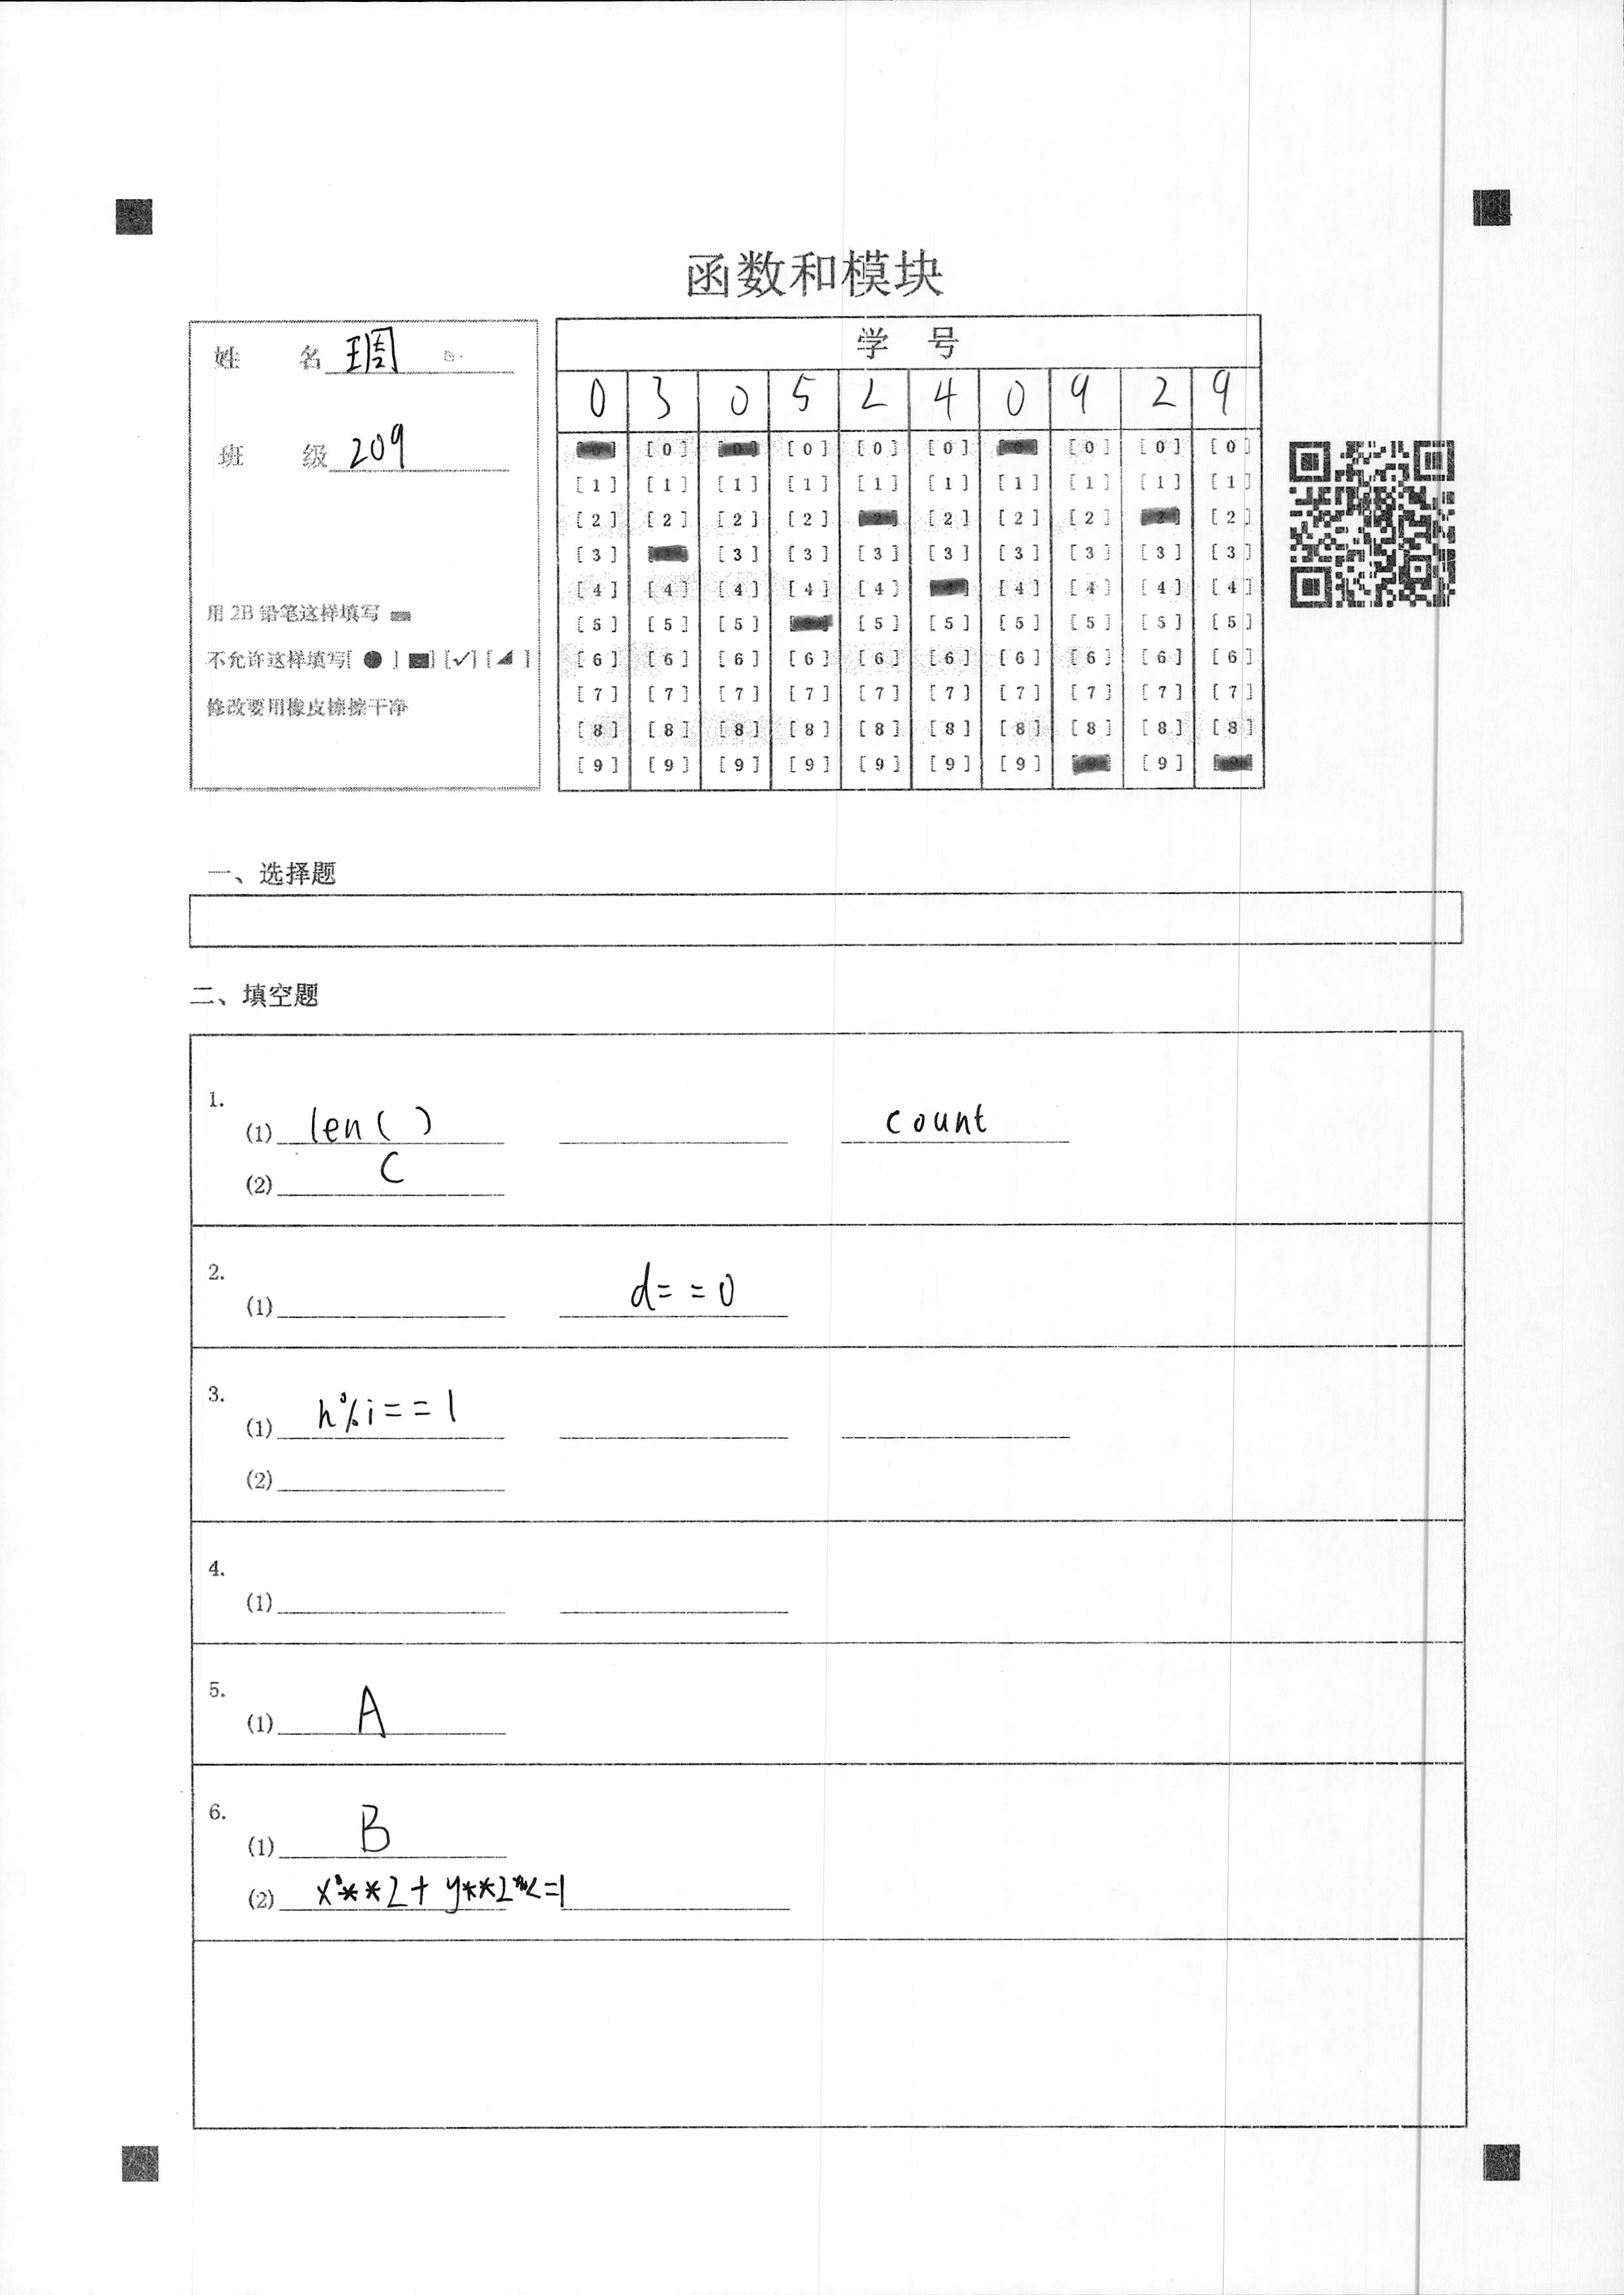 函数和模块
姓 名
班 级 209
用 2B 铅笔这样填写
不允许这样填写[ ● ] [■] [✓] [◢ ]
修改要用橡皮擦擦干净
学 号
0 3 0 5 2 4 0 9 2 9
[0] [0] [0] [0] [0] [0] [0] [0] [0] [0]
[1] [1] [1] [1] [1] [1] [1] [1] [1] [1]
[2] [2] [2] [2] [2] [2] [2] [2] [2] [2]
[3] [3] [3] [3] [3] [3] [3] [3] [3]
[4] [4] [4] [4] [4] [4] [4] [4] [4]
[5] [5] [5] [5] [5] [5] [5] [5] [5]
[6] [6] [6] [6] [6] [6] [6] [6] [6] [6]
[7] [7] [7] [7] [7] [7] [7] [7] [7] [7]
[8] [8] [8] [8] [8] [8] [8] [8] [8] [8]
[9] [9] [9] [9] [9] [9] [9] [9] [9] [9]
一、选择题
二、填空题
1.
(1) len( ) count
(2) C
2.
(1) d==0
3.
(1) n%i==1
(2)
4.
(1)
5.
(1) A
6.
(1) B
(2) x**2+y**2<=1